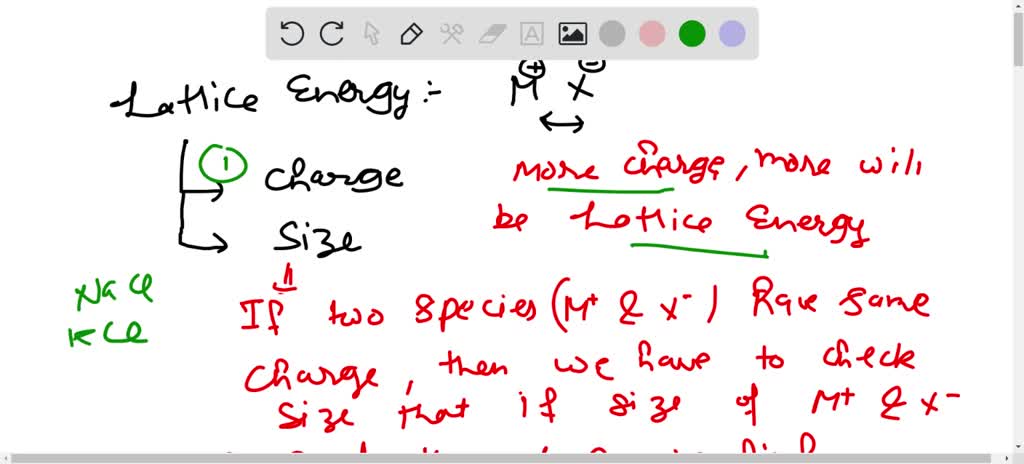 Lattice Energy :- M⊕ X⊖
① Charge
More charge, more will
be Lattice Energy
Size
NaCl
KCl
If two species (M⁺ & X⁻) have same
charge, then we have to check
size that if size of M⁺ & X⁻